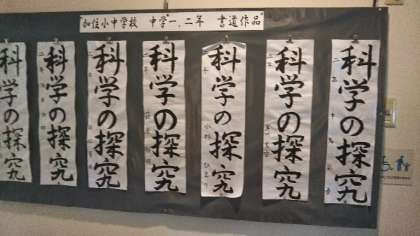 加住小中学校 中学一、二年 書道作品
科学の探究
科学の探究
科学の探究
科学の探究
科学の探究
科学の探究
科学の探究